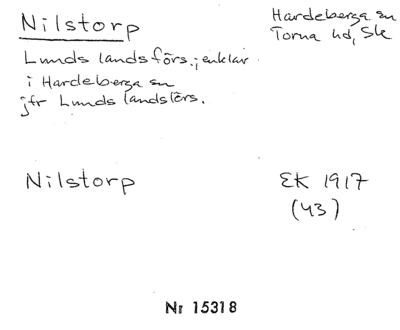 Nilstorp
Hardeberga sn
Torna hd, Sk
Lunds landsförs.; enklav
i Hardeberga sn
jfr Lunds landsförs.
Nilstorp
EK 1917
(43)
Nr 15318